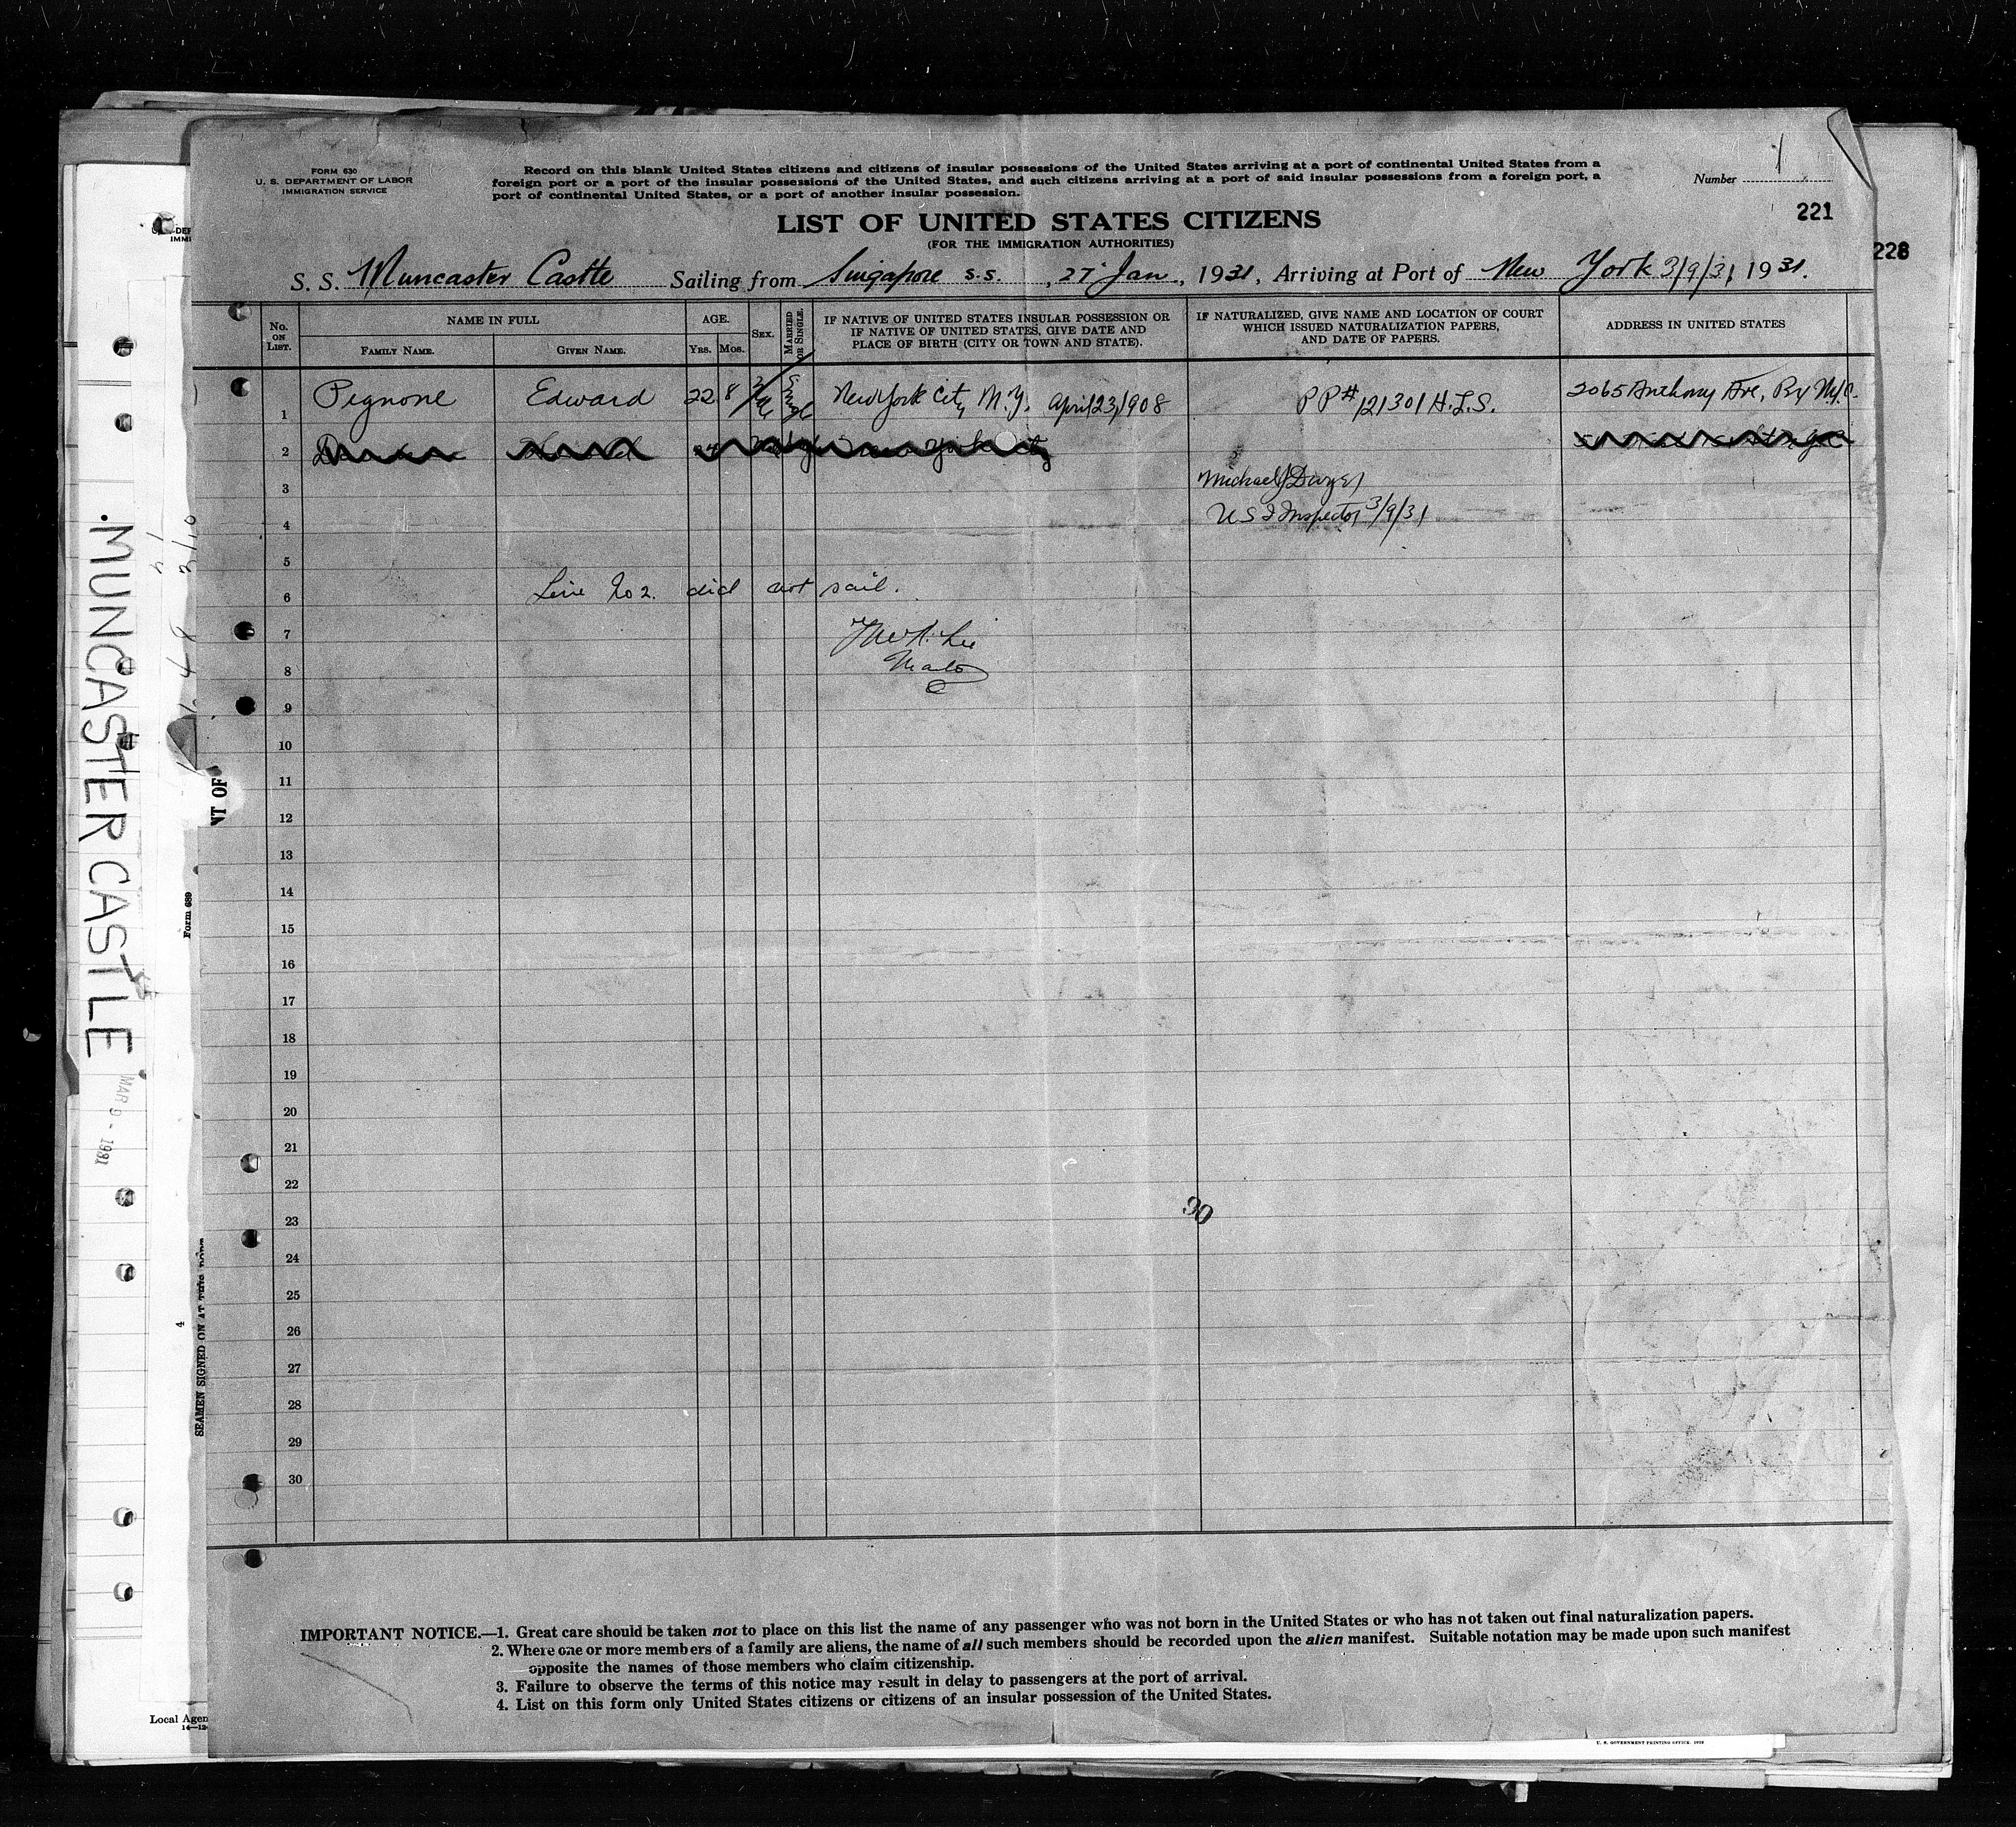 FORM 630
U. S. DEPARTMENT OF LABOR
IMMIGRATION SERVICE
Record on this blank United States citizens and citizens of insular possessions of the United States arriving at a port of continental United States from a
foreign port or a port of the insular possessions of the United States, and such citizens arriving at a port of said insular possessions from a foreign port, a
port of continental United States, or a port of another insular possession.
Number 1
221
228
LIST OF UNITED STATES CITIZENS
(FOR THE IMMIGRATION AUTHORITIES)
S. S. Muncaster Castle Sailing from Singapore s.s. , 27 Jan , 1931, Arriving at Port of New York 3/9/31, 1931.
No. ON LIST.
NAME IN FULL
FAMILY NAME.
GIVEN NAME.
AGE.
YRS. MOS.
SEX.
MARRIED OR SINGLE.
IF NATIVE OF UNITED STATES INSULAR POSSESSION OR
IF NATIVE OF UNITED STATES, GIVE DATE AND
PLACE OF BIRTH (CITY OR TOWN AND STATE).
IF NATURALIZED, GIVE NAME AND LOCATION OF COURT
WHICH ISSUED NATURALIZATION PAPERS,
AND DATE OF PAPERS.
ADDRESS IN UNITED STATES
1 Pignone Edward 22 8 Male Single New York City, N.Y. April 23, 1908 PP# 121301 H.L.S. 2065 Anthony Ave, Bx N.Y.C.
2
3 Michael J Dwyer
4 U S I Inspector 3/9/31
5
6 Line No 2. did not sail.
7
8
9
10
11
12
13
14
15
16
17
18
19
20
21
22
23
24
25
26
27
28
29
30
30
IMPORTANT NOTICE.—1. Great care should be taken not to place on this list the name of any passenger who was not born in the United States or who has not taken out final naturalization papers.
2. Where one or more members of a family are aliens, the name of all such members should be recorded upon the alien manifest. Suitable notation may be made upon such manifest
opposite the names of those members who claim citizenship.
3. Failure to observe the terms of this notice may result in delay to passengers at the port of arrival.
4. List on this form only United States citizens or citizens of an insular possession of the United States.
U. S. GOVERNMENT PRINTING OFFICE
MUNCASTER CASTLE
MAR 9 - 1931
NT OF
Form 689
4
SEAMEN SIGNED ON AT THIS
Local Agen
14—12